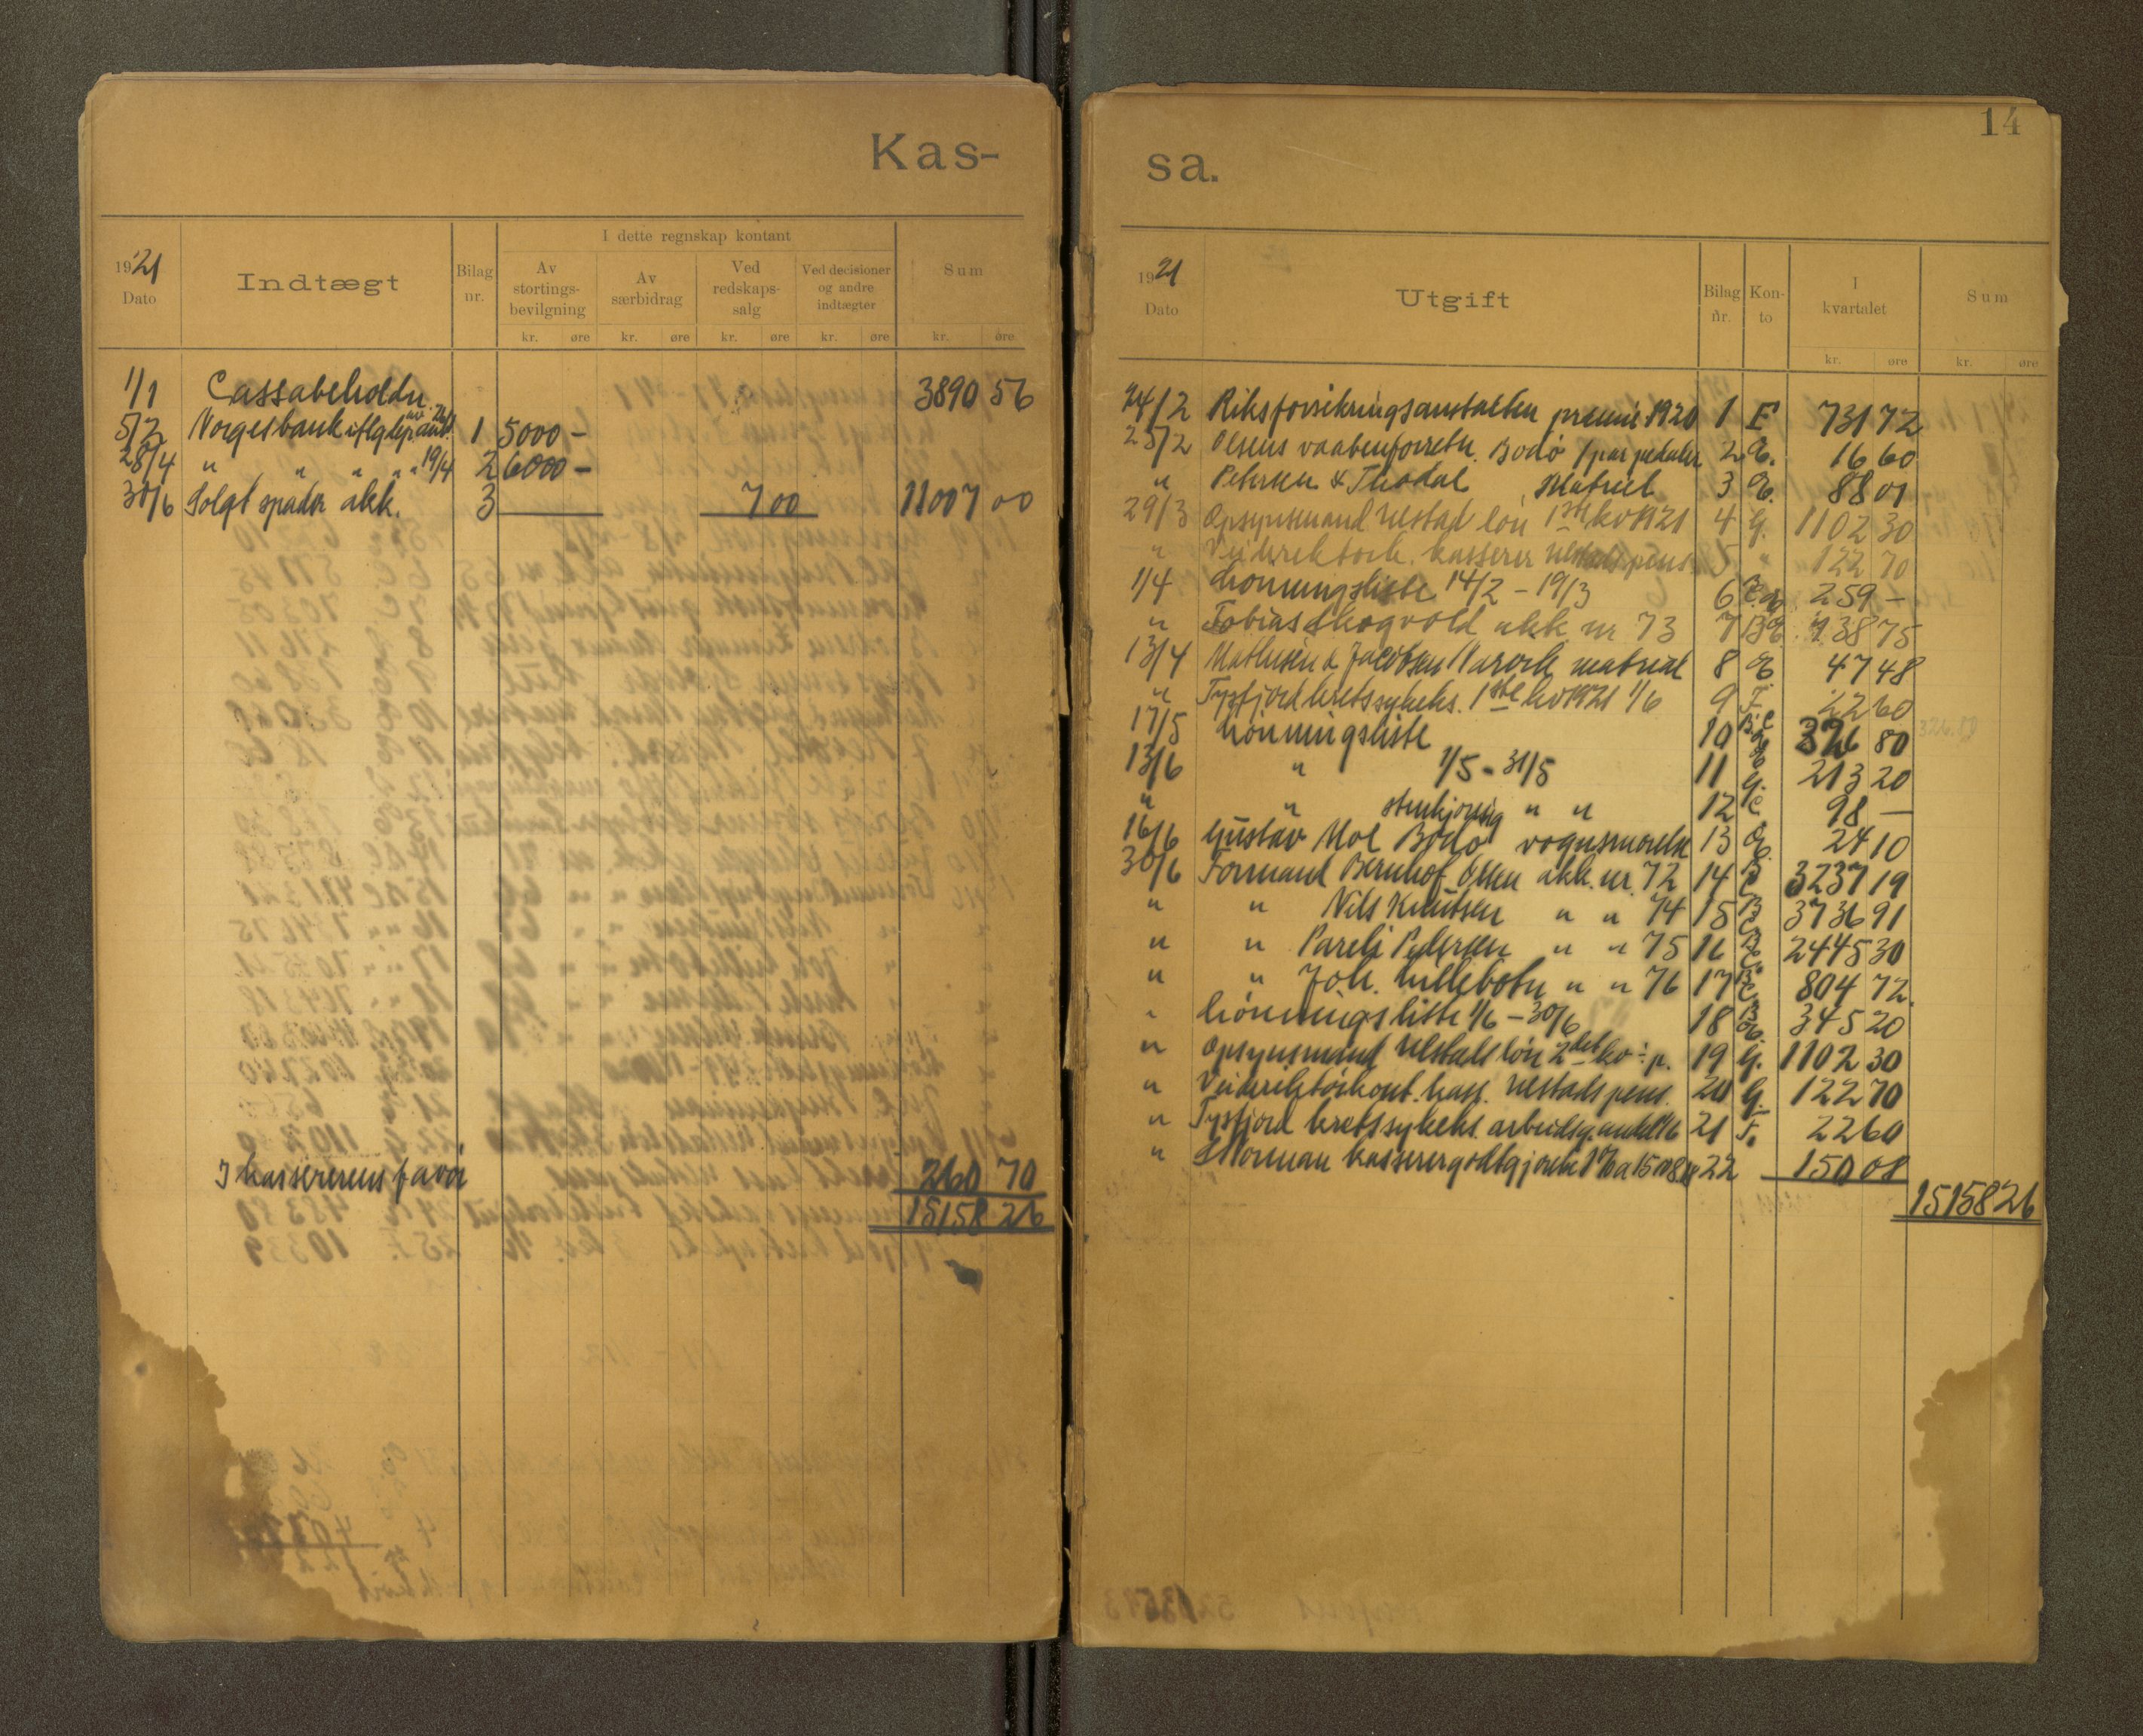 Kas-
I dette regnskap kontant
1921
Dato
Indtægt
Bilag
nr.
Av
stortings-
bevilgning
Av
særbidrag
Ved
redskaps-
salg
Ved decisioner
og andre
indtægter
Sum
kr. øre kr. øre kr. øre kr. øre kr. øre
1/1 Cassabeholdn. 3890 56
5/2 Norges bank iflg dep. 1 5000 -
28/4 " " " " " 19/4 2 6000 -
30/6 Solgt spader akk. 3 7 00 11007 00
I kassererens favør 260 70
15158 26
14
sa.
1921
Dato
Utgift
Bilag
nr.
Kon-
to
I
kvartalet
Sum
kr. øre kr. øre
24/2 Riksforsikringsanstalten premie 1920 1 F 731 72
25/2 Olsens vaabenforretn. Bodø 1 par pedaler 2 16 60
" Petersen & Thodal, Matriel 3 88 01
29/3 Opsynsmand Ulstad løn 1ste kv 1921 4 G. 1102 30
" Veidirektørk. kasserer Ulstads pens. 5 " 122 70
1/4 Lønningsliste 14/2 - 19/3 6 259 -
" Tobias Skogvold akk nr 73 7 38 75
13/4 Mathisen & Jacobsen Narvik matrial 8 47 48
" Tysfjord kretssykeks. 1ste kv 1921 1/6 9 F. 22 60
17/5 Lønningsliste 10 326 80 326.80
13/6 " 1/5 - 31/5 11 213 20
" " stenkjøring " " 12 98 -
16/6 Gustav Moe Bodø vognsmørelse 13 24 10
30/6 Formand Bernhof Olsen akk. nr. 72 14 3237 19
" " Nils Knutsen " " 74 15 3736 91
" " Pareli Pedersen " " 75 16 2445 30
" " Joh. Lillebotn " " 76 17 804 72.
" Lønningsliste 1/6 - 30/6 18 345 20
" Opsynsmand Ulstads løn 2det kv. p. 19 G. 1102 30
" Veidirektørkont. kass. Ulstads pens. 20 G. 122 70
" Tysfjord kretssykeks. arbeidsg. andel 1/6 21 F. 22 60
" Storman kasserergodtgjørelse 1% a 15008 22 150 08
15158 26